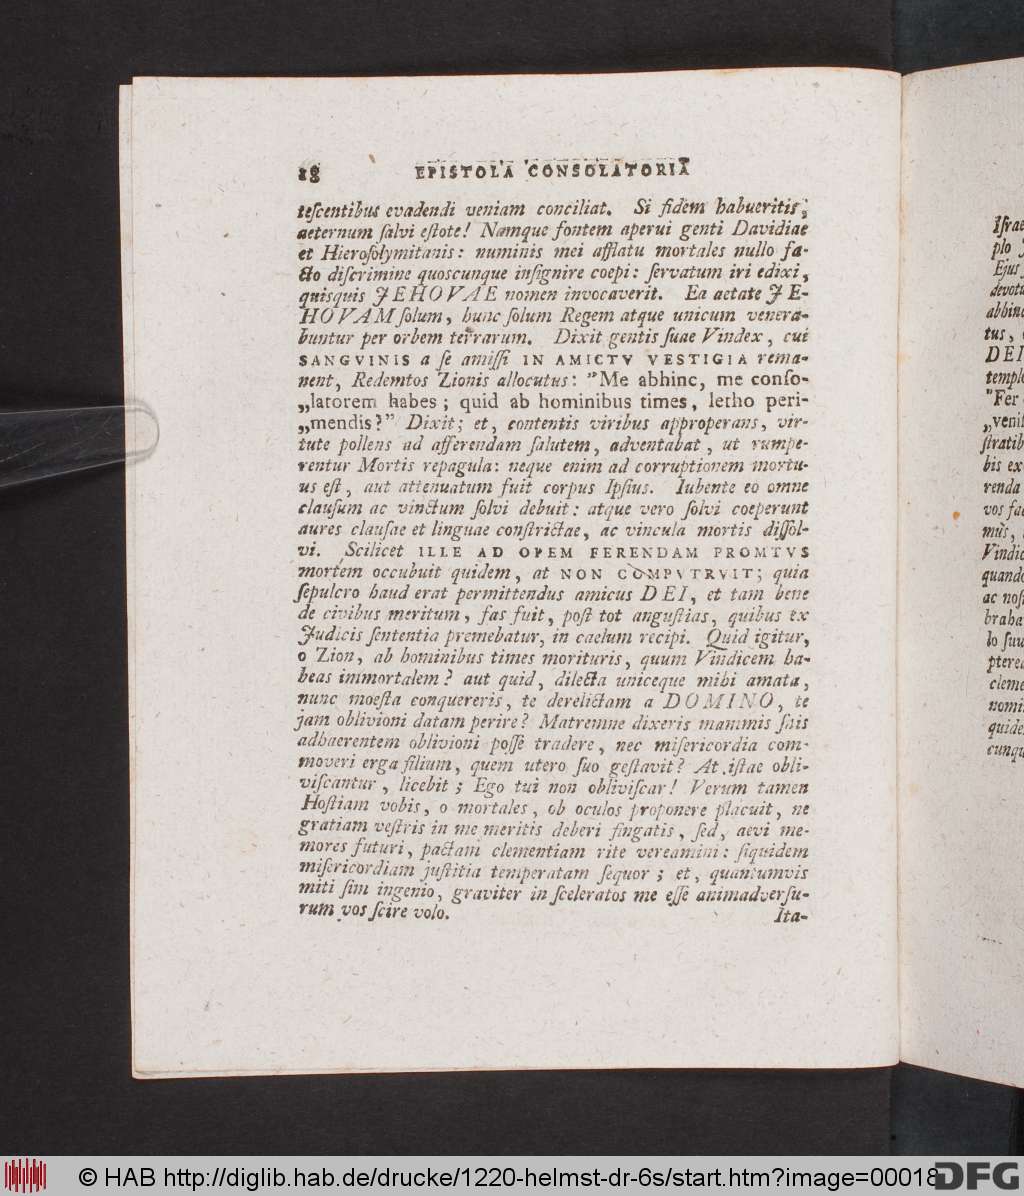 18 EPISTOLA CONSOLATORIA
tescentibus evadendi veniam conciliat. Si fidem habueritis,
aeternum salvi estote! Namque fontem aperui genti Davidiae
et Hierosolymitanis: numinis mei afflatu mortales nullo fa-
cto discrimine quoscunque insignire coepi: servatum iri edixi,
quisquis JEHOVAE nomen invocaverit. Ea aetate JE-
HOVAM solum, hunc solum Regem atque unicum venera-
buntur per orbem terrarum. Dixit gentis suae Vindex, cui
SANGVINIS a se amissi IN AMICTV VESTIGIA rema-
nent, Redemtos Zionis allocutus: "Me abhinc, me conso-
„latorem habes; quid ab hominibus times, letho peri-
„mendis?" Dixit; et, contentis viribus approperans, vir-
tute pollens ad afferendam salutem, adventabat, ut rumpe-
rentur Mortis repagula: neque enim ad corruptionem mortu-
us est, aut attenuatum fuit corpus Ipsius. Iubente eo omne
clausum ac vinctum solvi debuit: atque vero solvi coeperunt
aures clausae et linguae constrictae, ac vincula mortis dissol-
vi. Scilicet ILLE AD OPEM FERENDAM PROMTVS
mortem occubuit quidem, at NON COMPVTRVIT; quia
sepulcro haud erat permittendus amicus DEI, et tam bene
de civibus meritum, fas fuit, post tot angustias, quibus ex
Judicis sententia premebatur, in caelum recipi. Quid igitur,
o Zion, ab hominibus times morituris, quum Vindicem ha-
beas immortalem? aut quid, dilecta uniceque mihi amata,
nunc moesta conquereris, te derelictam a DOMINO, te
jam oblivioni datam perire? Matremne dixeris mammis suis
adhaerentem oblivioni posse tradere, nec misericordia com-
moveri erga filium, quem utero suo gestavit? At istae obli-
viscantur, licebit; Ego tui non obliviscar! Verum tamen
Hostiam vobis, o mortales, ob oculos proponere placuit, ne
gratiam vestris in me meritis deberi fingatis, sed, aevi me-
mores futuri, pactam clementiam rite vereamini: siquidem
misericordiam justitia temperatam sequor; et, quantumvis
miti sim ingenio, graviter in sceleratos me esse animadversu-
rum vos scire volo.
Ita-
Israe
plo
Ejus
devotu
abhinc
tus,
DEI
templo
"Fer
„venis
stratib
bis ex
renda
vos fac
mus,
Vindic
quando
ac nos
braha
lo suu
pterea
cleme
nomin
quide
cunqu
© HAB http://diglib.hab.de/drucke/1220-helmst-dr-6s/start.htm?image=00018
DFG